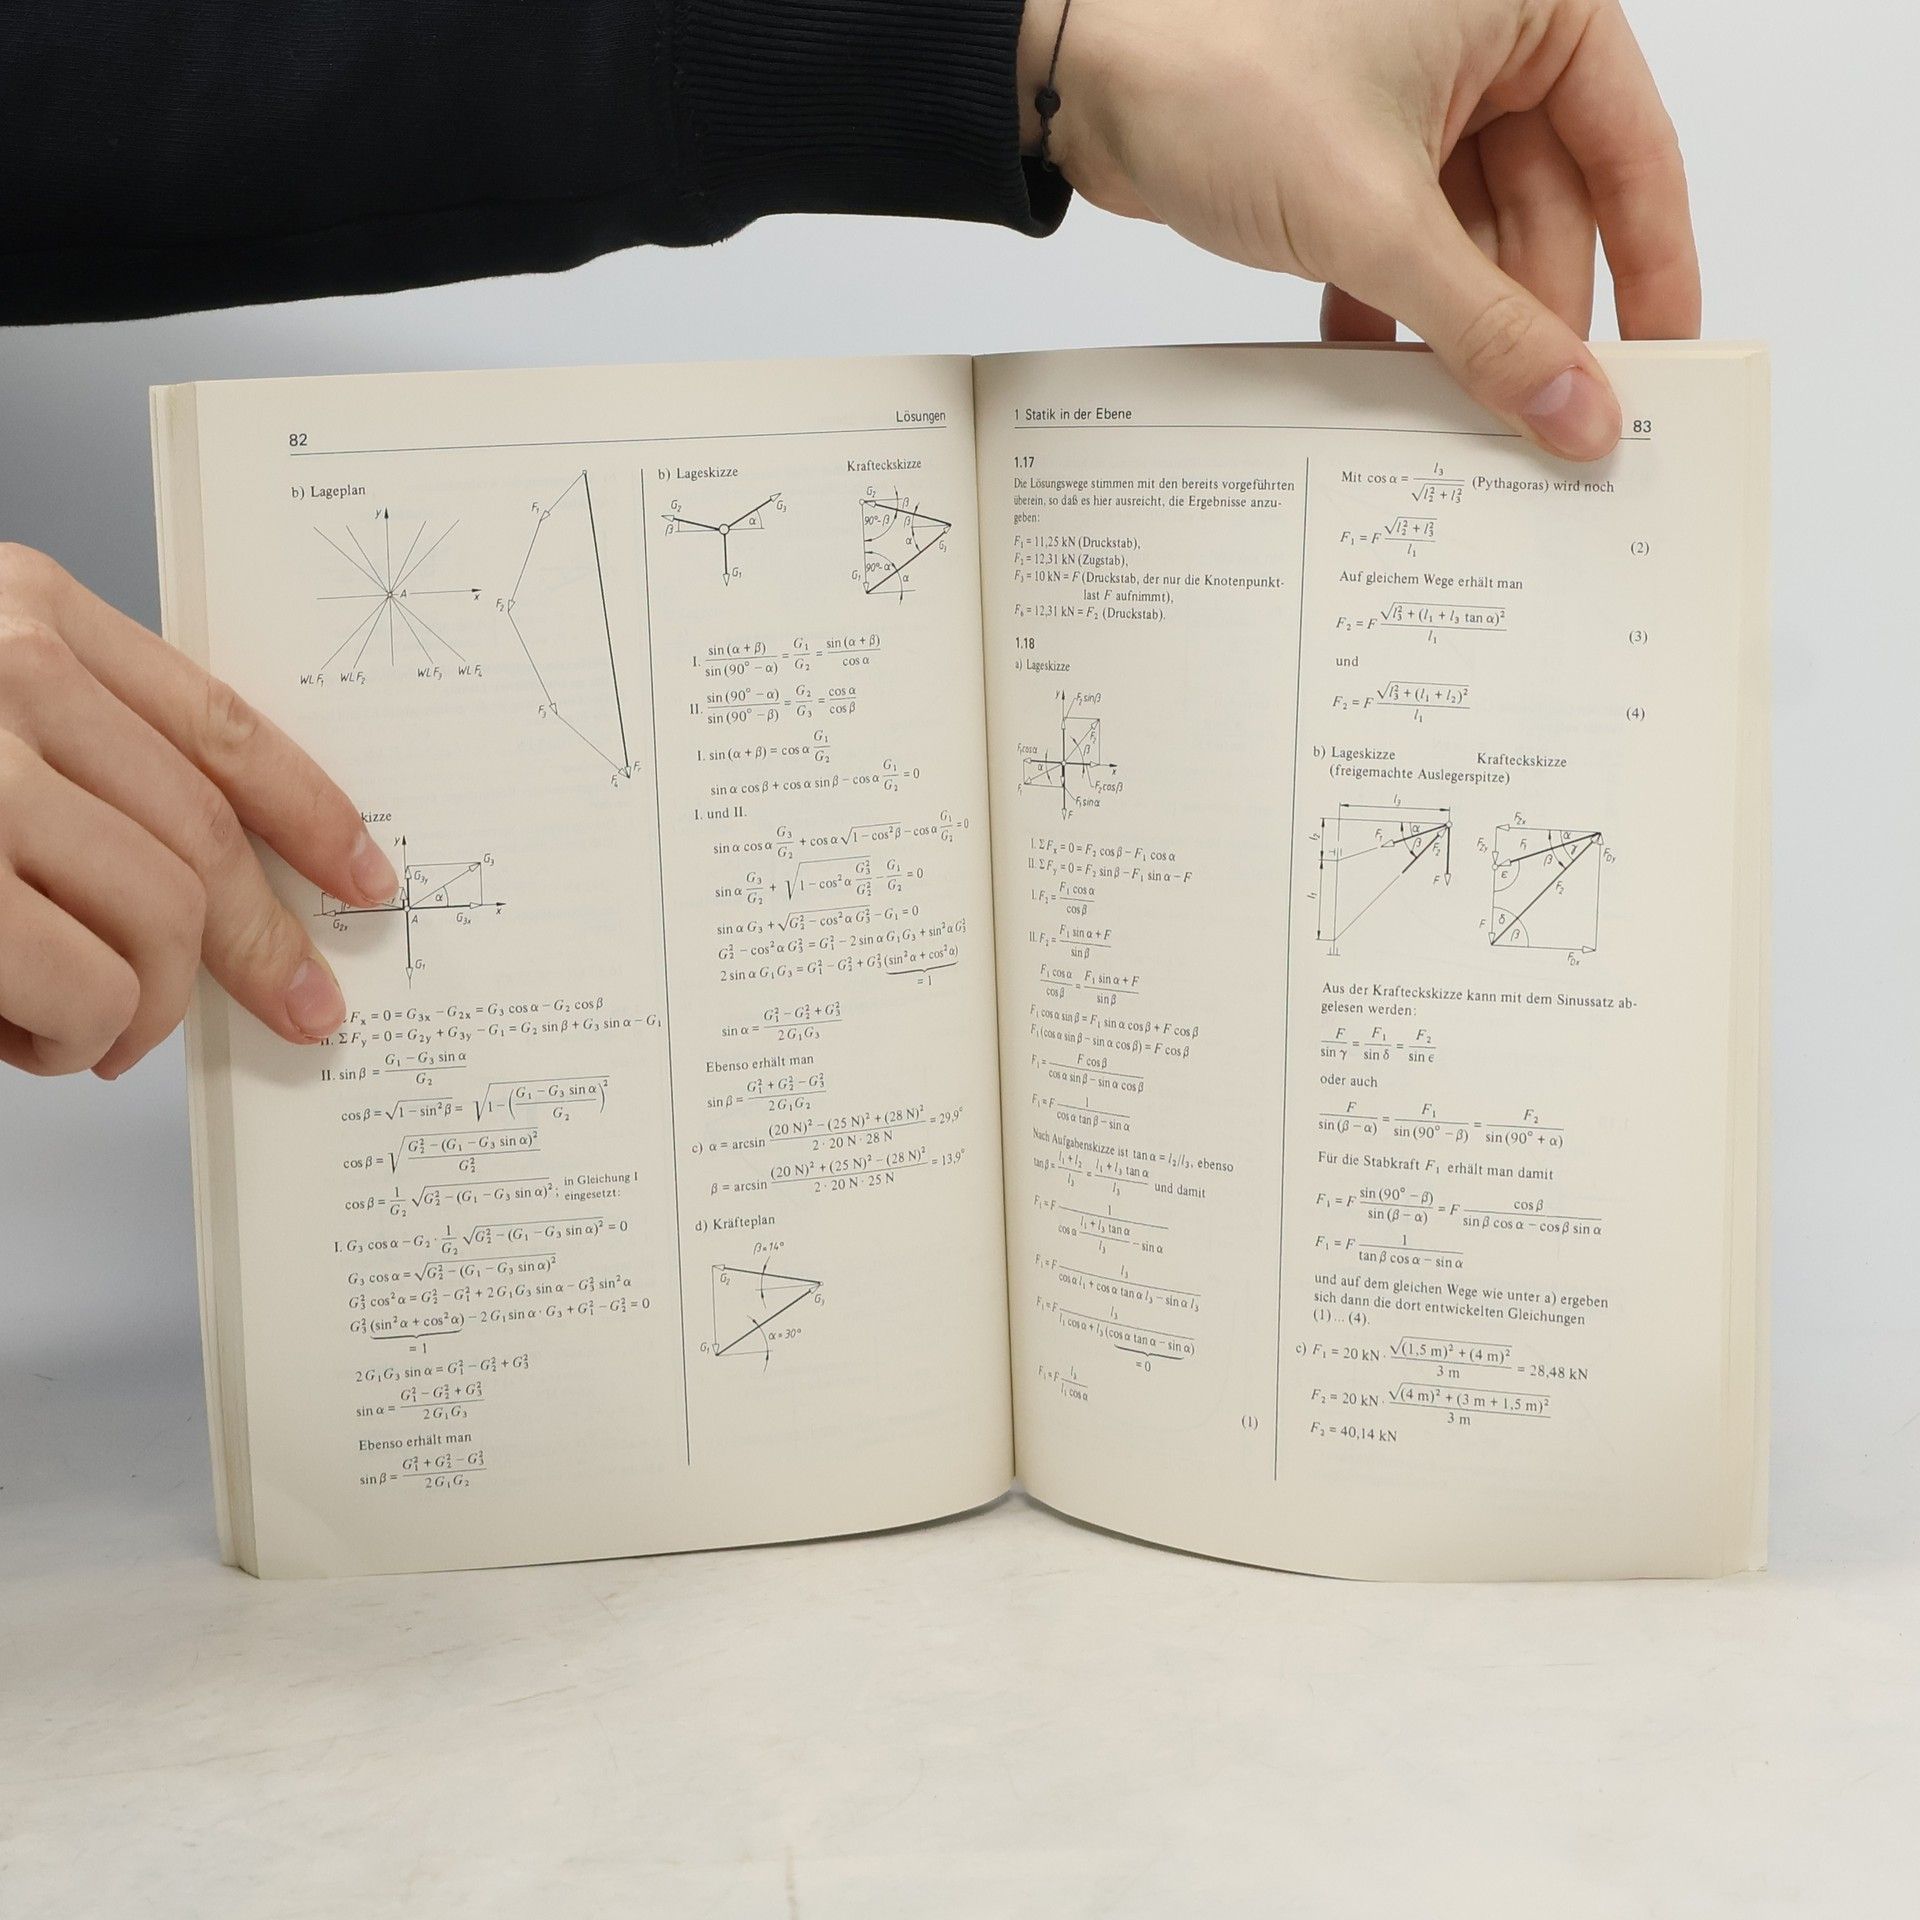 82
Lösungen
b) Lageplan
y
A
x
WL F₁ WL F₂ WL F₃ WL F₄
F₁
F₂
F₃
F₄
Fᵣ
kizze
y
G₃
G₃y
α
G₂ₓ
A
G₃ₓ
x
G₁
Fₓ = 0 = G₃ₓ − G₂ₓ = G₃ cos α − G₂ cos β
II. Σ Fy = 0 = G₂y + G₃y − G₁ = G₂ sin β + G₃ sin α − G₁
II. sin β = (G₁ − G₃ sin α)/G₂
cos β = √(1 − sin² β) = √(1 − ((G₁ − G₃ sin α)/G₂)²)
cos β = √((G₂² − (G₁ − G₃ sin α)²)/G₂²)
cos β = 1/G₂ √(G₂² − (G₁ − G₃ sin α)²); in Gleichung I
eingesetzt:
I. G₃ cos α − G₂ · 1/G₂ √(G₂² − (G₁ − G₃ sin α)²) = 0
G₃ cos α = √(G₂² − (G₁ − G₃ sin α)²)
G₃² cos² α = G₂² − G₁² + 2 G₁G₃ sin α − G₃² sin² α
G₃² (sin² α + cos² α) − 2 G₁ sin α · G₃ + G₁² − G₂² = 0
= 1
2 G₁G₃ sin α = G₁² − G₂² + G₃²
sin α = (G₁² − G₂² + G₃²)/(2 G₁G₃)
Ebenso erhält man
sin β = (G₁² + G₂² − G₃²)/(2 G₁G₂)
b) Lageskizze Krafteckskizze
G₂ G₃
β α
G₁
G₂
β
90°−β β
α
G₃
G₁ 90°−α α
I. sin (α + β)/sin (90° − α) = G₁/G₂ = sin (α + β)/cos α
II. sin (90° − α)/sin (90° − β) = G₂/G₃ = cos α/cos β
I. sin (α + β) = cos α G₁/G₂
sin α cos β + cos α sin β − cos α G₁/G₂ = 0
I. und II.
sin α cos α G₃/G₂ + cos α √(1 − cos² β) − cos α G₁/G₂ = 0
sin α G₃/G₂ + √(1 − cos² α G₃²/G₂²) − G₁/G₂ = 0
sin α G₃ + √(G₂² − cos² α G₃²) − G₁ = 0
G₂² − cos² α G₃² = G₁² − 2 sin α G₁G₃ + sin² α G₃²
2 sin α G₁G₃ = G₁² − G₂² + G₃² (sin² α + cos² α)
= 1
sin α = (G₁² − G₂² + G₃²)/(2 G₁G₃)
Ebenso erhält man
sin β = (G₁² + G₂² − G₃²)/(2 G₁G₂)
c) α = arcsin ((20 N)² − (25 N)² + (28 N)²)/(2 · 20 N · 28 N) = 29,9°
β = arcsin ((20 N)² + (25 N)² − (28 N)²)/(2 · 20 N · 25 N) = 13,9°
d) Kräfteplan
β≈14°
G₂
G₃
G₁
α≈30°
1 Statik in der Ebene
83
1.17
Die Lösungswege stimmen mit den bereits vorgeführten
überein, so daß es hier ausreicht, die Ergebnisse anzu-
geben:
F₁ = 11,25 kN (Druckstab),
F₂ = 12,31 kN (Zugstab),
F₃ = 10 kN = F (Druckstab, der nur die Knotenpunkt-
last F aufnimmt),
F₆ = 12,31 kN = F₂ (Druckstab).
1.18
a) Lageskizze
y
F₂ sin β
F₁ cos α
F₂
β
α
x
F₁
F₂ cos β
F₁ sin α
F
I. Σ Fₓ = 0 = F₂ cos β − F₁ cos α
II. Σ Fy = 0 = F₂ sin β − F₁ sin α − F
I. F₂ = F₁ cos α/cos β
II. F₂ = (F₁ sin α + F)/sin β
F₁ cos α/cos β = (F₁ sin α + F)/sin β
F₁ cos α sin β = F₁ sin α cos β + F cos β
F₁ (cos α sin β − sin α cos β) = F cos β
F₁ = F cos β/(cos α sin β − sin α cos β)
F₁ = F 1/(cos α tan β − sin α)
Nach Aufgabenskizze ist tan α = l₂/l₃, ebenso
tan β = (l₁ + l₂)/l₃ = (l₁ + l₃ tan α)/l₃ und damit
F₁ = F 1/(cos α (l₁ + l₃ tan α)/l₃ − sin α)
F₁ = F l₃/(cos α l₁ + cos α tan α l₃ − sin α l₃)
F₁ = F l₃/(l₁ cos α + l₃ (cos α tan α − sin α))
= 0
F₁ = F l₃/(l₁ cos α)
(1)
Mit cos α = l₃/√(l₂² + l₃²) (Pythagoras) wird noch
F₁ = F √(l₂² + l₃²)/l₁ (2)
Auf gleichem Wege erhält man
F₂ = F √(l₃² + (l₁ + l₃ tan α)²)/l₁ (3)
und
F₂ = F √(l₃² + (l₁ + l₂)²)/l₁ (4)
b) Lageskizze Krafteckskizze
(freigemachte Auslegerspitze)
l₃
l₂
l₁
F₁ α
β F₂
F
F₂ₓ
F₂y F₁ α
β γ F₀y
ε F₂
F δ
β
F₀ₓ
Aus der Krafteckskizze kann mit dem Sinussatz ab-
gelesen werden:
F/sin γ = F₁/sin δ = F₂/sin ε
oder auch
F/sin (β − α) = F₁/sin (90° − β) = F₂/sin (90° + α)
Für die Stabkraft F₁ erhält man damit
F₁ = F sin (90° − β)/sin (β − α) = F cos β/(sin β cos α − cos β sin α)
F₁ = F 1/(tan β cos α − sin α)
und auf dem gleichen Wege wie unter a) ergeben
sich dann die dort entwickelten Gleichungen
(1) ... (4).
c) F₁ = 20 kN · √((1,5 m)² + (4 m)²)/3 m = 28,48 kN
F₂ = 20 kN · √((4 m)² + (3 m + 1,5 m)²)/3 m
F₂ = 40,14 kN